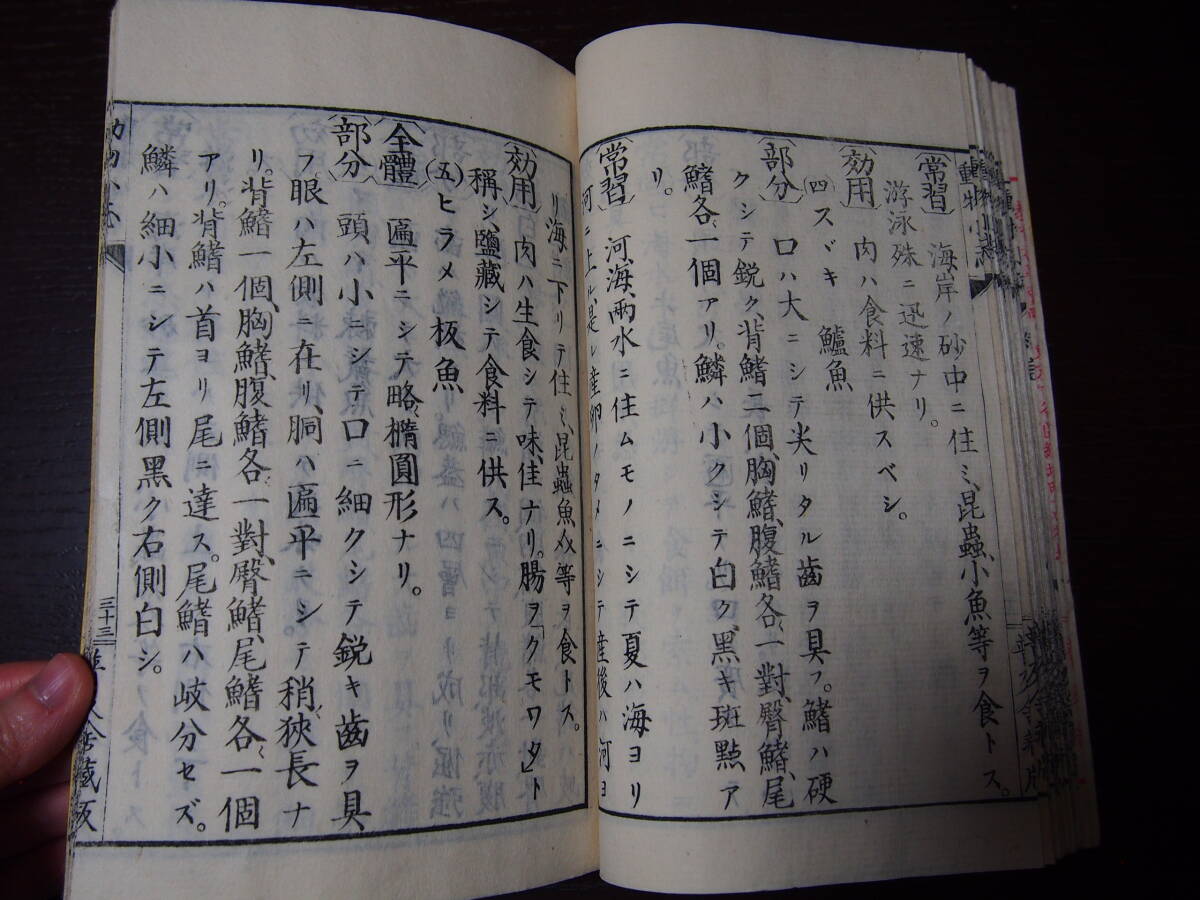 動物小誌
〔常習〕 海岸ノ砂中ニ住ミ、昆蟲、小魚等ヲ食トス。
游泳殊ニ迅速ナリ。
〔効用〕 肉ハ食料ニ供スベシ。
(四)スヾキ 鱸魚
〔部分〕 口ハ大ニシテ尖リタル齒ヲ具フ。鰭ハ硬
クシテ鋭ク、背鰭二個、胸鰭、腹鰭各一對、臀鰭、尾
鰭各一個アリ。鱗ハ小クシテ白ク、黒キ斑點ア
リ。
〔常習〕 河、海、兩水ニ住ムモノニシテ夏ハ海ヨリ
河ニ上ル、是レ産卵ノタメニシテ産後ハ河ヨ
リ海ニ下リテ住ミ、昆蟲、魚、等ヲ食トス。
〔効用〕 肉ハ生食シテ味佳ナリ。腸ヲ「クモワタ」ト
稱シ、鹽藏シテ食料ニ供ス。
(五)ヒラメ 板魚
〔全體〕 匾平ニシテ略、橢圓形ナリ。
〔部分〕 頭ハ小ニシテ口ニ細クシテ鋭キ齒ヲ具
フ。眼ハ左側ニ在リ、胴ハ匾平ニシテ稍狹長ナ
リ。背鰭一個、胸鰭、腹鰭各、一對、臀鰭、尾鰭各、一個
アリ。背鰭ハ首ヨリ尾ニ達ス。尾鰭ハ岐分セズ。
鱗ハ細小ニシテ左側黒ク右側白シ。
三十三
藏版